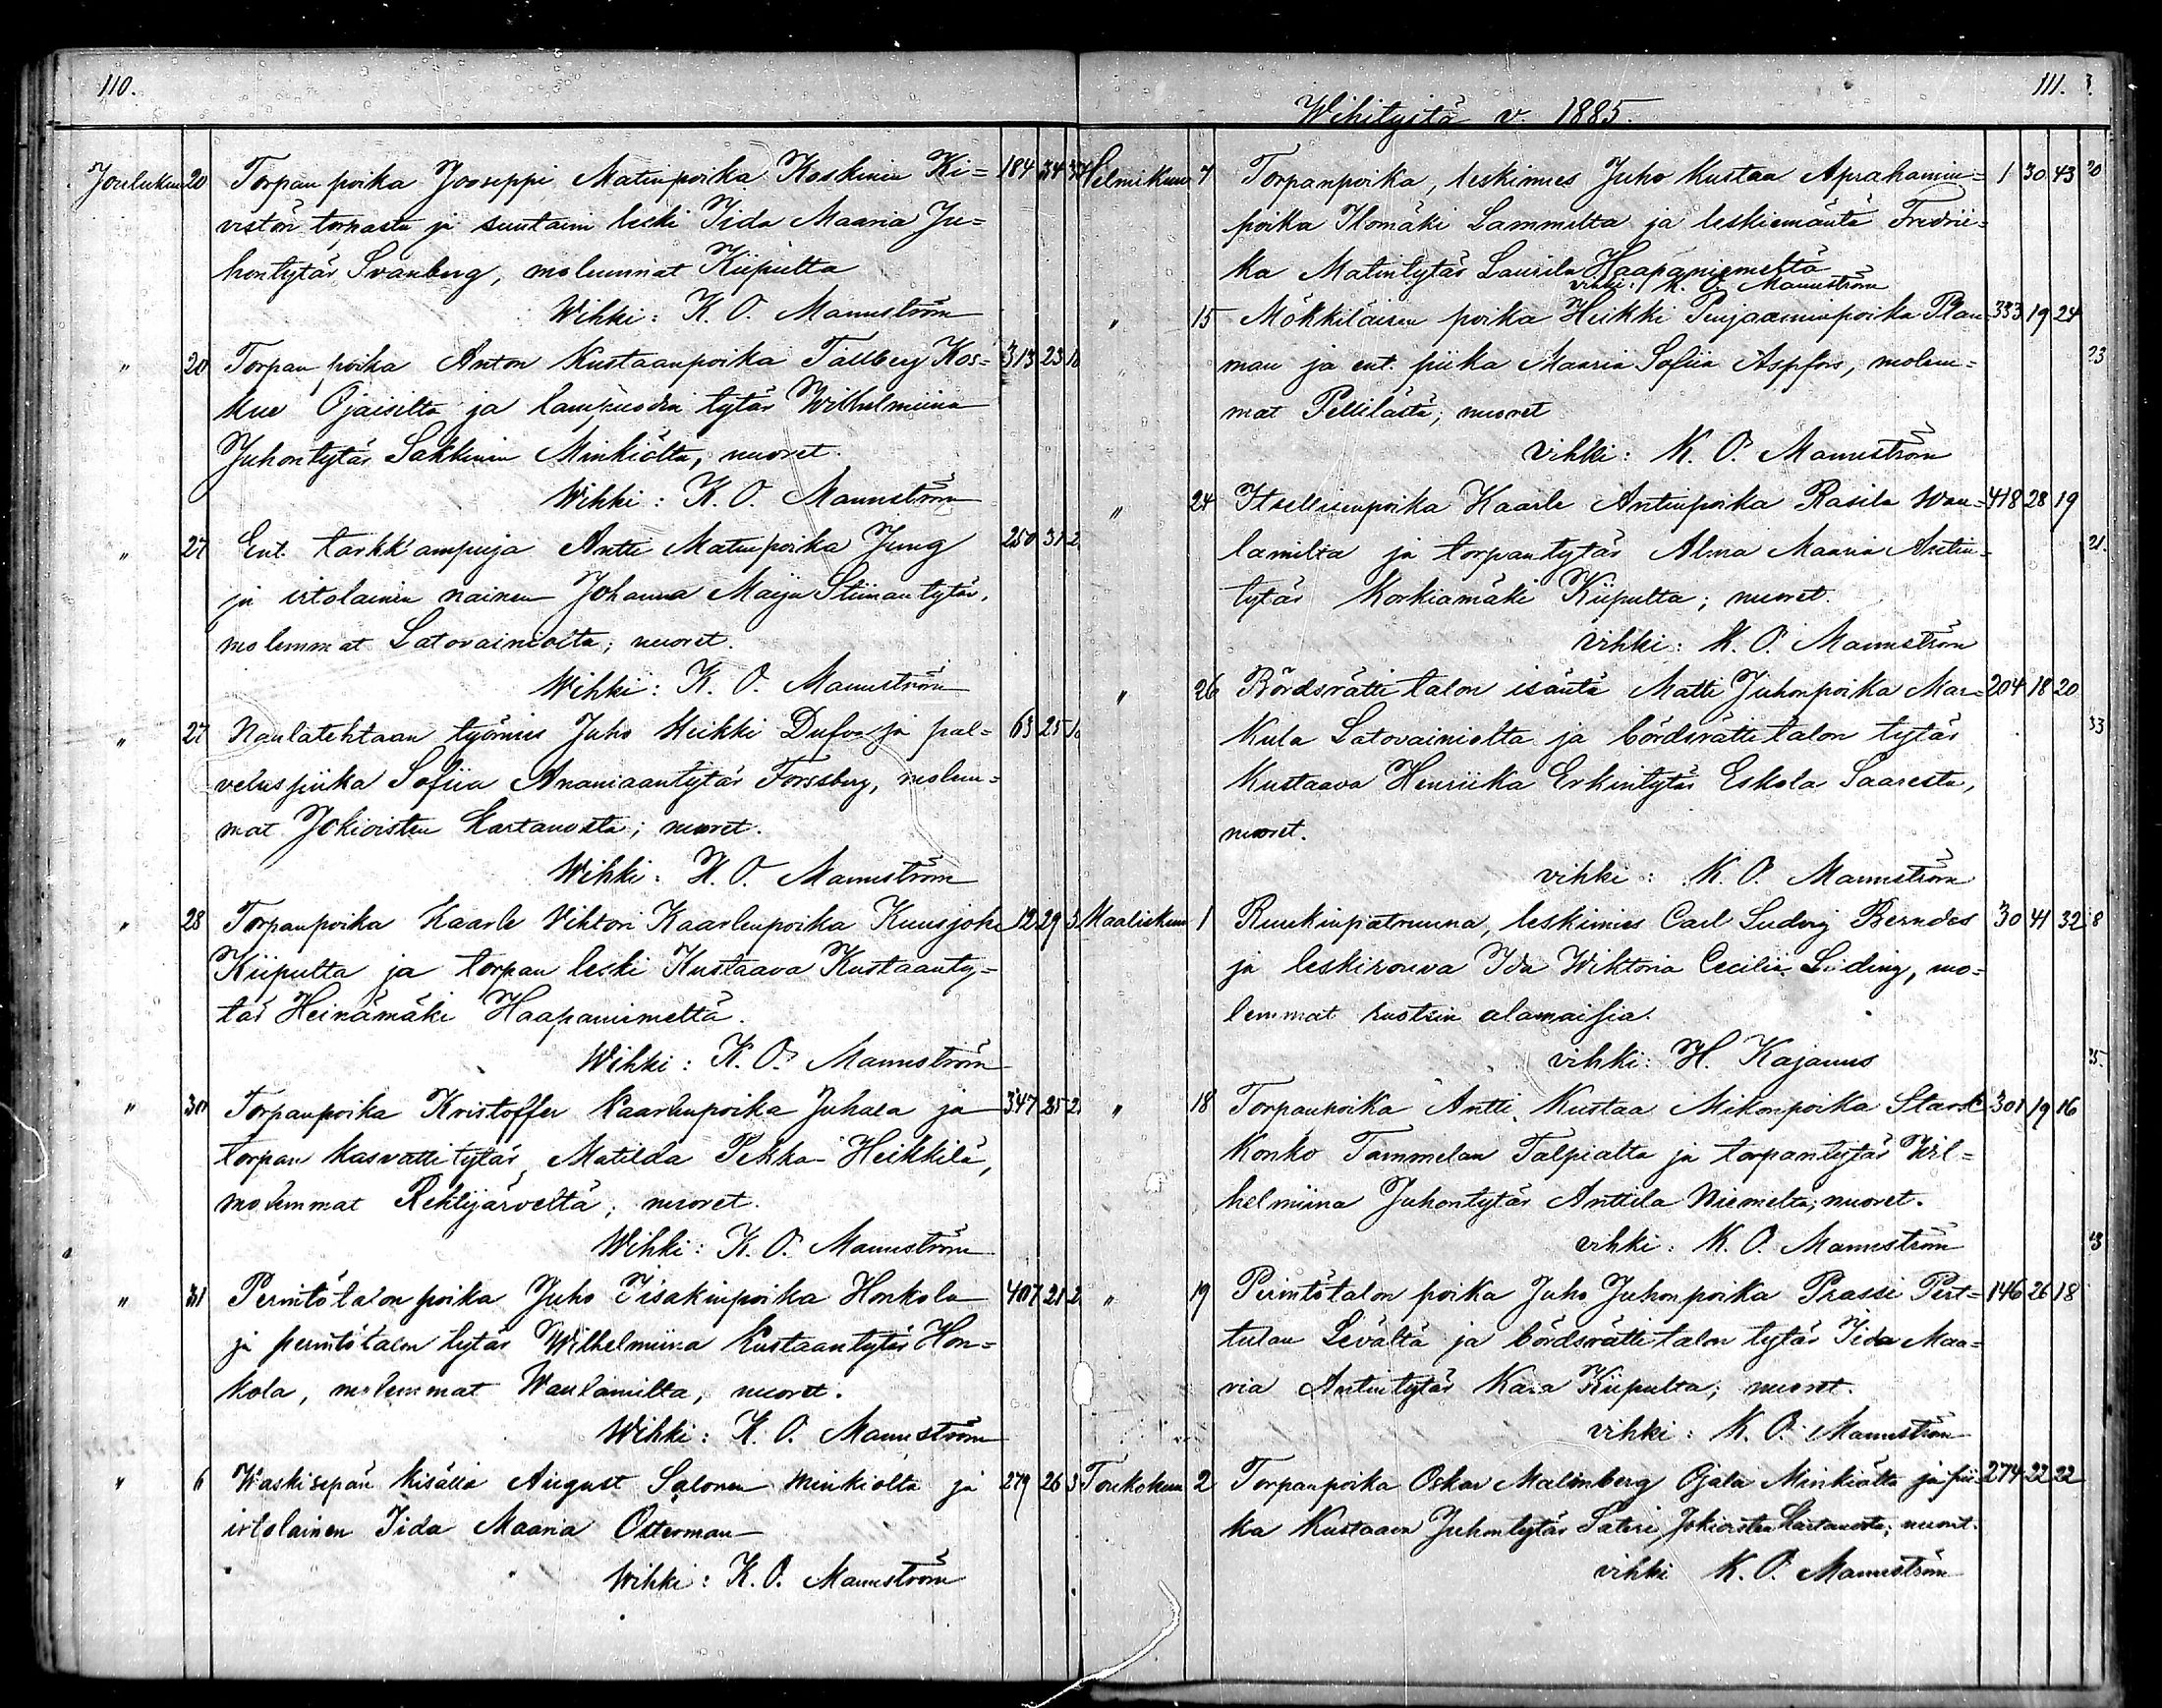 110.
Joulukuu 20 Torpan poika Jooseppi Matinpoika Koskinen Ki= 184 34
vistön torpasta ja suutarin leski Iida Maaria Ju=
hontytär Svanberg, molemmat Kiipulta
Wihki: K. O. Mannström
" 20 Torpan poika Anton Kustaanpoika Tallberg Kos= 313 23
kue Ojaisilta ja lampuodin tytär Wilhelmiina
Juhontytär Sakkinen Minkiölta, nuoret.
Wihki: K. O. Mannström
" 27 Ent. tarkk'ampuja Antti Matinpoika Jung 250 31 2
ja irtolainen nainen Johanna Maija Stiimantytär,
molemmat Latovainiolta; nuoret.
Wihki: K. O. Mannström
" 27 Naulatehtaan työmies Juho Heikki Dufva ja pal= 63 25
velus piika Sofiia Ananiaantytär Forssberg, molem=
mat Jokioisten Kartanosta; nuoret.
Wihki: K. O. Mannström
" 28 Torpanpoika Kaarle Vihtori Kaarlenpoika Kuusjoki 12 29 3
Kiipulta ja torpan leski Kustaava Kustaanty=
tär Heinämäki Haapaniemeltä.
Wihki: K. O. Mannström
" 30 Torpanpoika Kristoffer Kaarlenpoika Juhala ja 347 25 2
torpan kasvatti tytär Matilda Pekka-Heikkilä,
molemmat Rehtijärveltä; nuoret.
Wihki: K. O. Mannström
" 31 Perintötalon poika Juho Iisakinpoika Honkola 407 21 2
ja perintötalon tytär Wilhelmiina Kustaantytär Hon=
kola, molemmat Waulamilta, nuoret.
Wihki: K. O. Mannström
" 6 Waskisepän kisälli August Salonen Minkiolta ja 279 26 3
irtolainen Iida Maaria Österman
Wihki: K. O. Mannström
111.
Wihityitä v. 1885.
Helmikuu 7 Torpanpoika, leskimies Juho Kustaa Aprahamin= 1 30 43
poika Ilomäki Lammilta ja leskiemäntä Fredrii=
ka Matintytär Laurila Haapaniemeltä
vihki: K. O. Mannström
" 15 Mökkiläisen poika Heikki Penjaaminpoika Plan 333 19 24
man ja ent. piika Maaria Sofiia Aspfors, molem=
mat Pellilästä; nuoret
vihki: K. O. Mannström
" 24 Itsellisenpoika Kaarle Antinpoika Rasila Wau= 418 28 19
lamilta ja torpantytär Alma Maaria Antin=
tytär Korkiamäki Kiipulta; nuoret.
vihki: K. O. Mannström
" 26 Bördsrätti talon isäntä Matti Juhonpoika Mar= 204 18 20
kula Latovainiolta ja bördsrätti talon tytär
Kustaava Henriika Erkintytär Eskola Saaresta,
nuoret.
vihki: K. O. Mannström
Maaliskuu 1 Ruukinpatruuna, leskimies Carl Ludvig Berndes 30 41 32
ja leskirouva Ida Wiktoria Cecilia Liding, mo=
lemmat ruotsin alamaisia.
vihki: H. Kajanus
" 18 Torpanpoika Antti Kustaa Mikonpoika Stark 301 19 16
Konko Tammelan Talpialta ja torpantytär Wil=
helmiina Juhontytär Anttila Niemeltä; nuoret.
vihki: K. O. Mannström
" 19 Perintötalon poika Juho Juhonpoika Prassi Pert= 146 26 18
tulan Levältä ja bördsrätti talon tytär Iida Maa=
ria Antintytär Kara Kiipulta; nuoret.
vihki: K. O. Mannström
Toukokuu 2 Torpanpoika Oskar Malmberg Ojala Minkiölta ja pii= 274 22 22
ka Kustaava Juhontytär Säteri Jokioisten Kartanosta; nuoret.
vihki K. O. Mannström